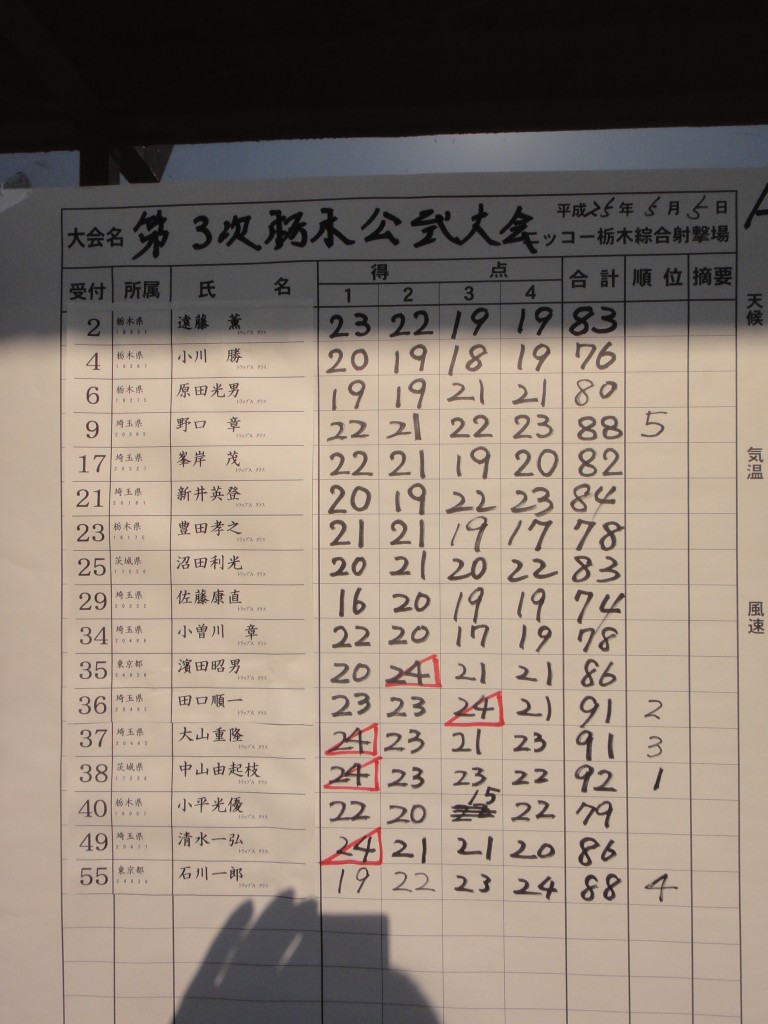 平成25年 5月 5日
大会名 第3次栃木公式大会 ニッコー栃木綜合射撃場
得 点
受付 所属 氏 名 1 2 3 4 合計 順位 摘要
2 栃木県 遠藤 薫 23 22 19 19 83
4 栃木県 小川 勝 20 19 18 19 76
6 栃木県 原田光男 19 19 21 21 80
9 埼玉県 野口 章 22 21 22 23 88 5
17 埼玉県 峯岸 茂 22 21 19 20 82
21 埼玉県 新井英登 20 19 22 23 84
23 栃木県 豊田孝之 21 21 19 17 78
25 茨城県 沼田利光 20 21 20 22 83
29 埼玉県 佐藤康直 16 20 19 19 74
34 埼玉県 小曽川 章 22 20 17 19 78
35 東京都 濱田昭男 20 24 21 21 86
36 埼玉県 田口順一 23 23 24 21 91 2
37 埼玉県 大山重隆 24 23 21 23 91 3
38 茨城県 中山由起枝 24 23 23 22 92 1
40 栃木県 小平光優 22 20 15 22 79
49 埼玉県 清水一弘 24 21 21 20 86
55 東京都 石川一郎 19 22 23 24 88 4
天候
気温
風速